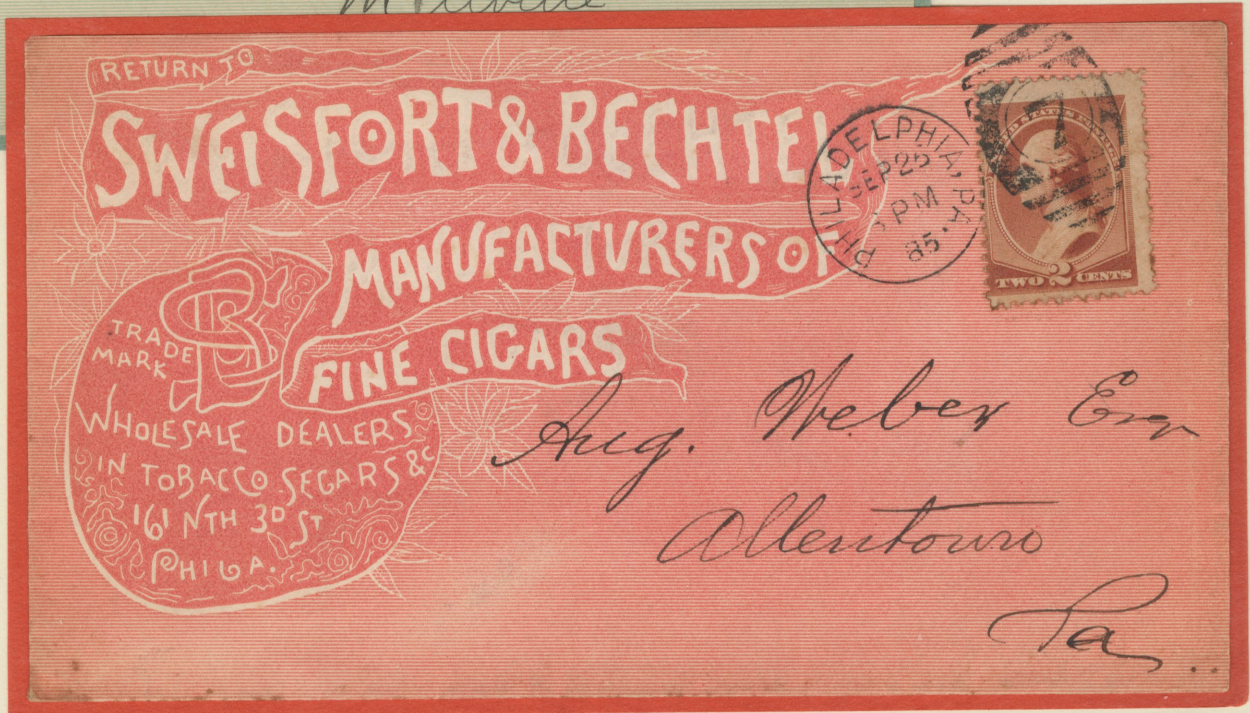 RETURN TO
SWEISFORT & BECHTEL
MANUFACTURERS OF
FINE CIGARS
TRADE
MARK
SB
WHOLESALE DEALERS
IN TOBACCO SEGARS &C
161 NTH 3D ST
PHILA.
PHILADELPHIA, PA.
SEP 25
PM
85
7
UNITED STATES
TWO 2 CENTS
Aug. Weber Esq
Allentown
Pa